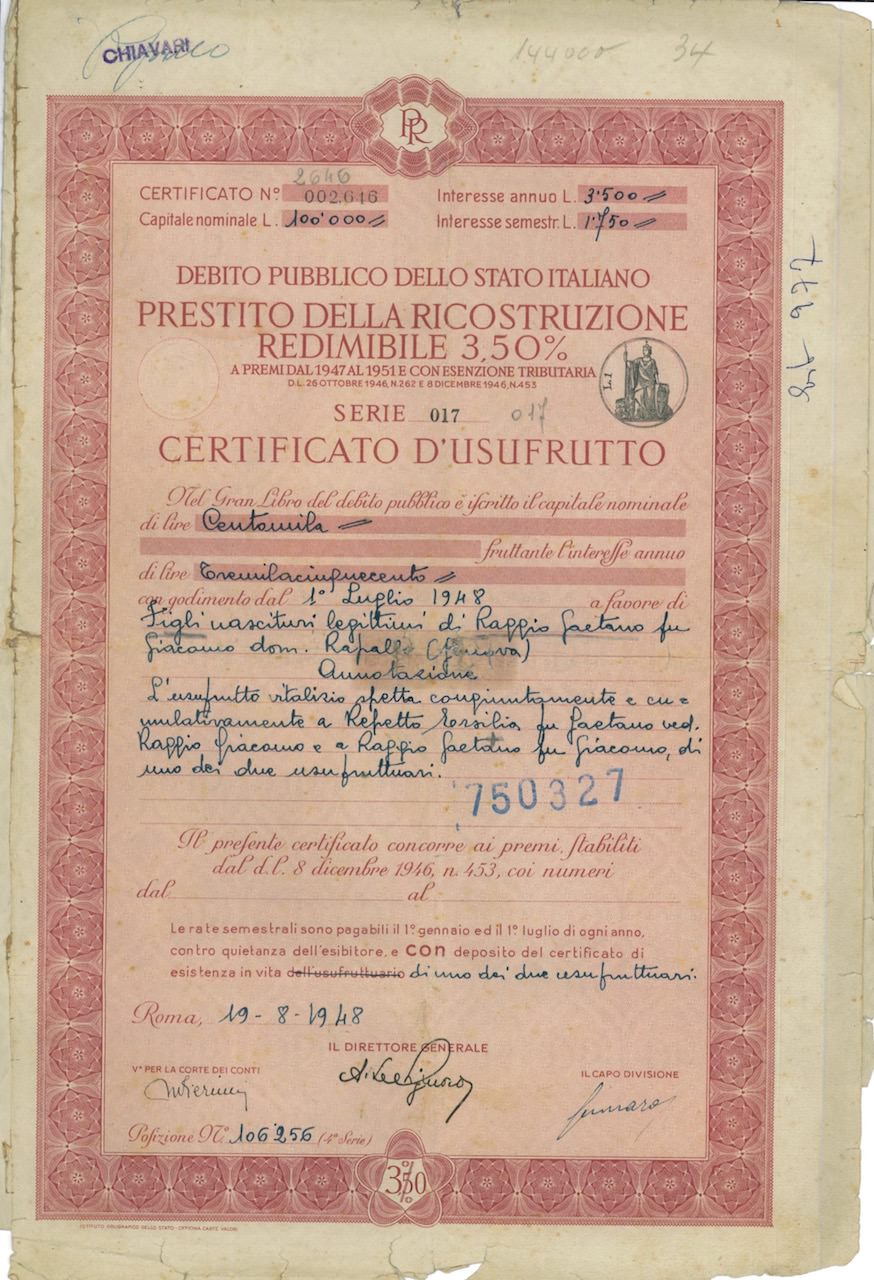 CHIAVARI
144000 34
PR
2646
CERTIFICATO Nº. 002.616
Interesse annuo L. 3.500 =
Capitale nominale L. 100'000 =
Interesse semestr. L. 1.750 =
DEBITO PUBBLICO DELLO STATO ITALIANO
PRESTITO DELLA RICOSTRUZIONE
REDIMIBILE 3,50%
A PREMI DAL 1947 AL 1951 E CON ESENZIONE TRIBUTARIA
D.L. 26 OTTOBRE 1946, N.262 E 8 DICEMBRE 1946, N.453
L.1
SERIE 017 017
CERTIFICATO D'USUFRUTTO
Nel Gran Libro del debito pubblico è iscritto il capitale nominale
di lire Centomila =
fruttante l'interesse annuo
di lire Tremilacinquecento =
con godimento dal 1º Luglio 1948 a favore di
Figli nascituri legittimi di Raggio Gaetano fu
Giacomo dom. Rapallo (Genova)
Annotazione
L'usufrutto vitalizio spetta congiuntamente e cu=
mulativamente a Repetto Ersilia fu Gaetano ved.
Raggio Giacomo e a Raggio Gaetano fu Giacomo, di
uno dei due usufruttuari.
750327
Il presente certificato concorre ai premi, stabiliti
dal d.l. 8 dicembre 1946, n. 453, coi numeri
dal al
Le rate semestrali sono pagabili il 1º gennaio ed il 1º luglio di ogni anno,
contro quietanza dell'esibitore, e CON deposito del certificato di
esistenza in vita dell'usufruttuario di uno dei due usufruttuari.
Roma, 19-8-1948
IL DIRETTORE GENERALE
Vº PER LA CORTE DEI CONTI
IL CAPO DIVISIONE
Posizione Nº 106256 (4ª Serie)
3,50%
ISTITUTO POLIGRAFICO DELLO STATO - OFFICINA CARTE VALORI